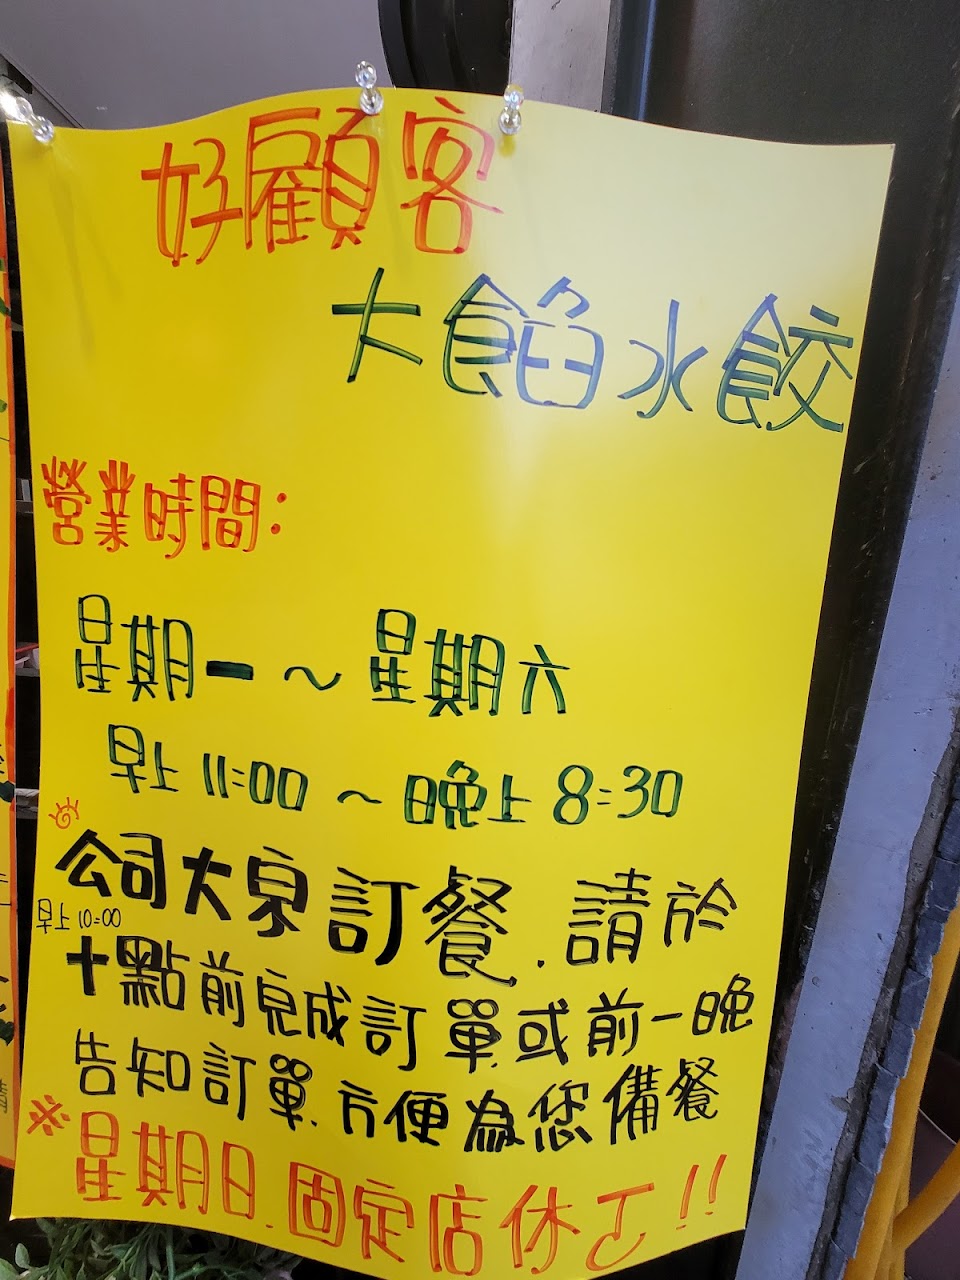 好顧客
大餡水餃
營業時間:
星期一～星期六
早上 11:00 ～ 晚上 8:30
公司大宗訂餐.請於
早上 10:00
十點前完成訂單.或前一晚
告知訂單.方便為您備餐
※星期日.固定店休乙!!